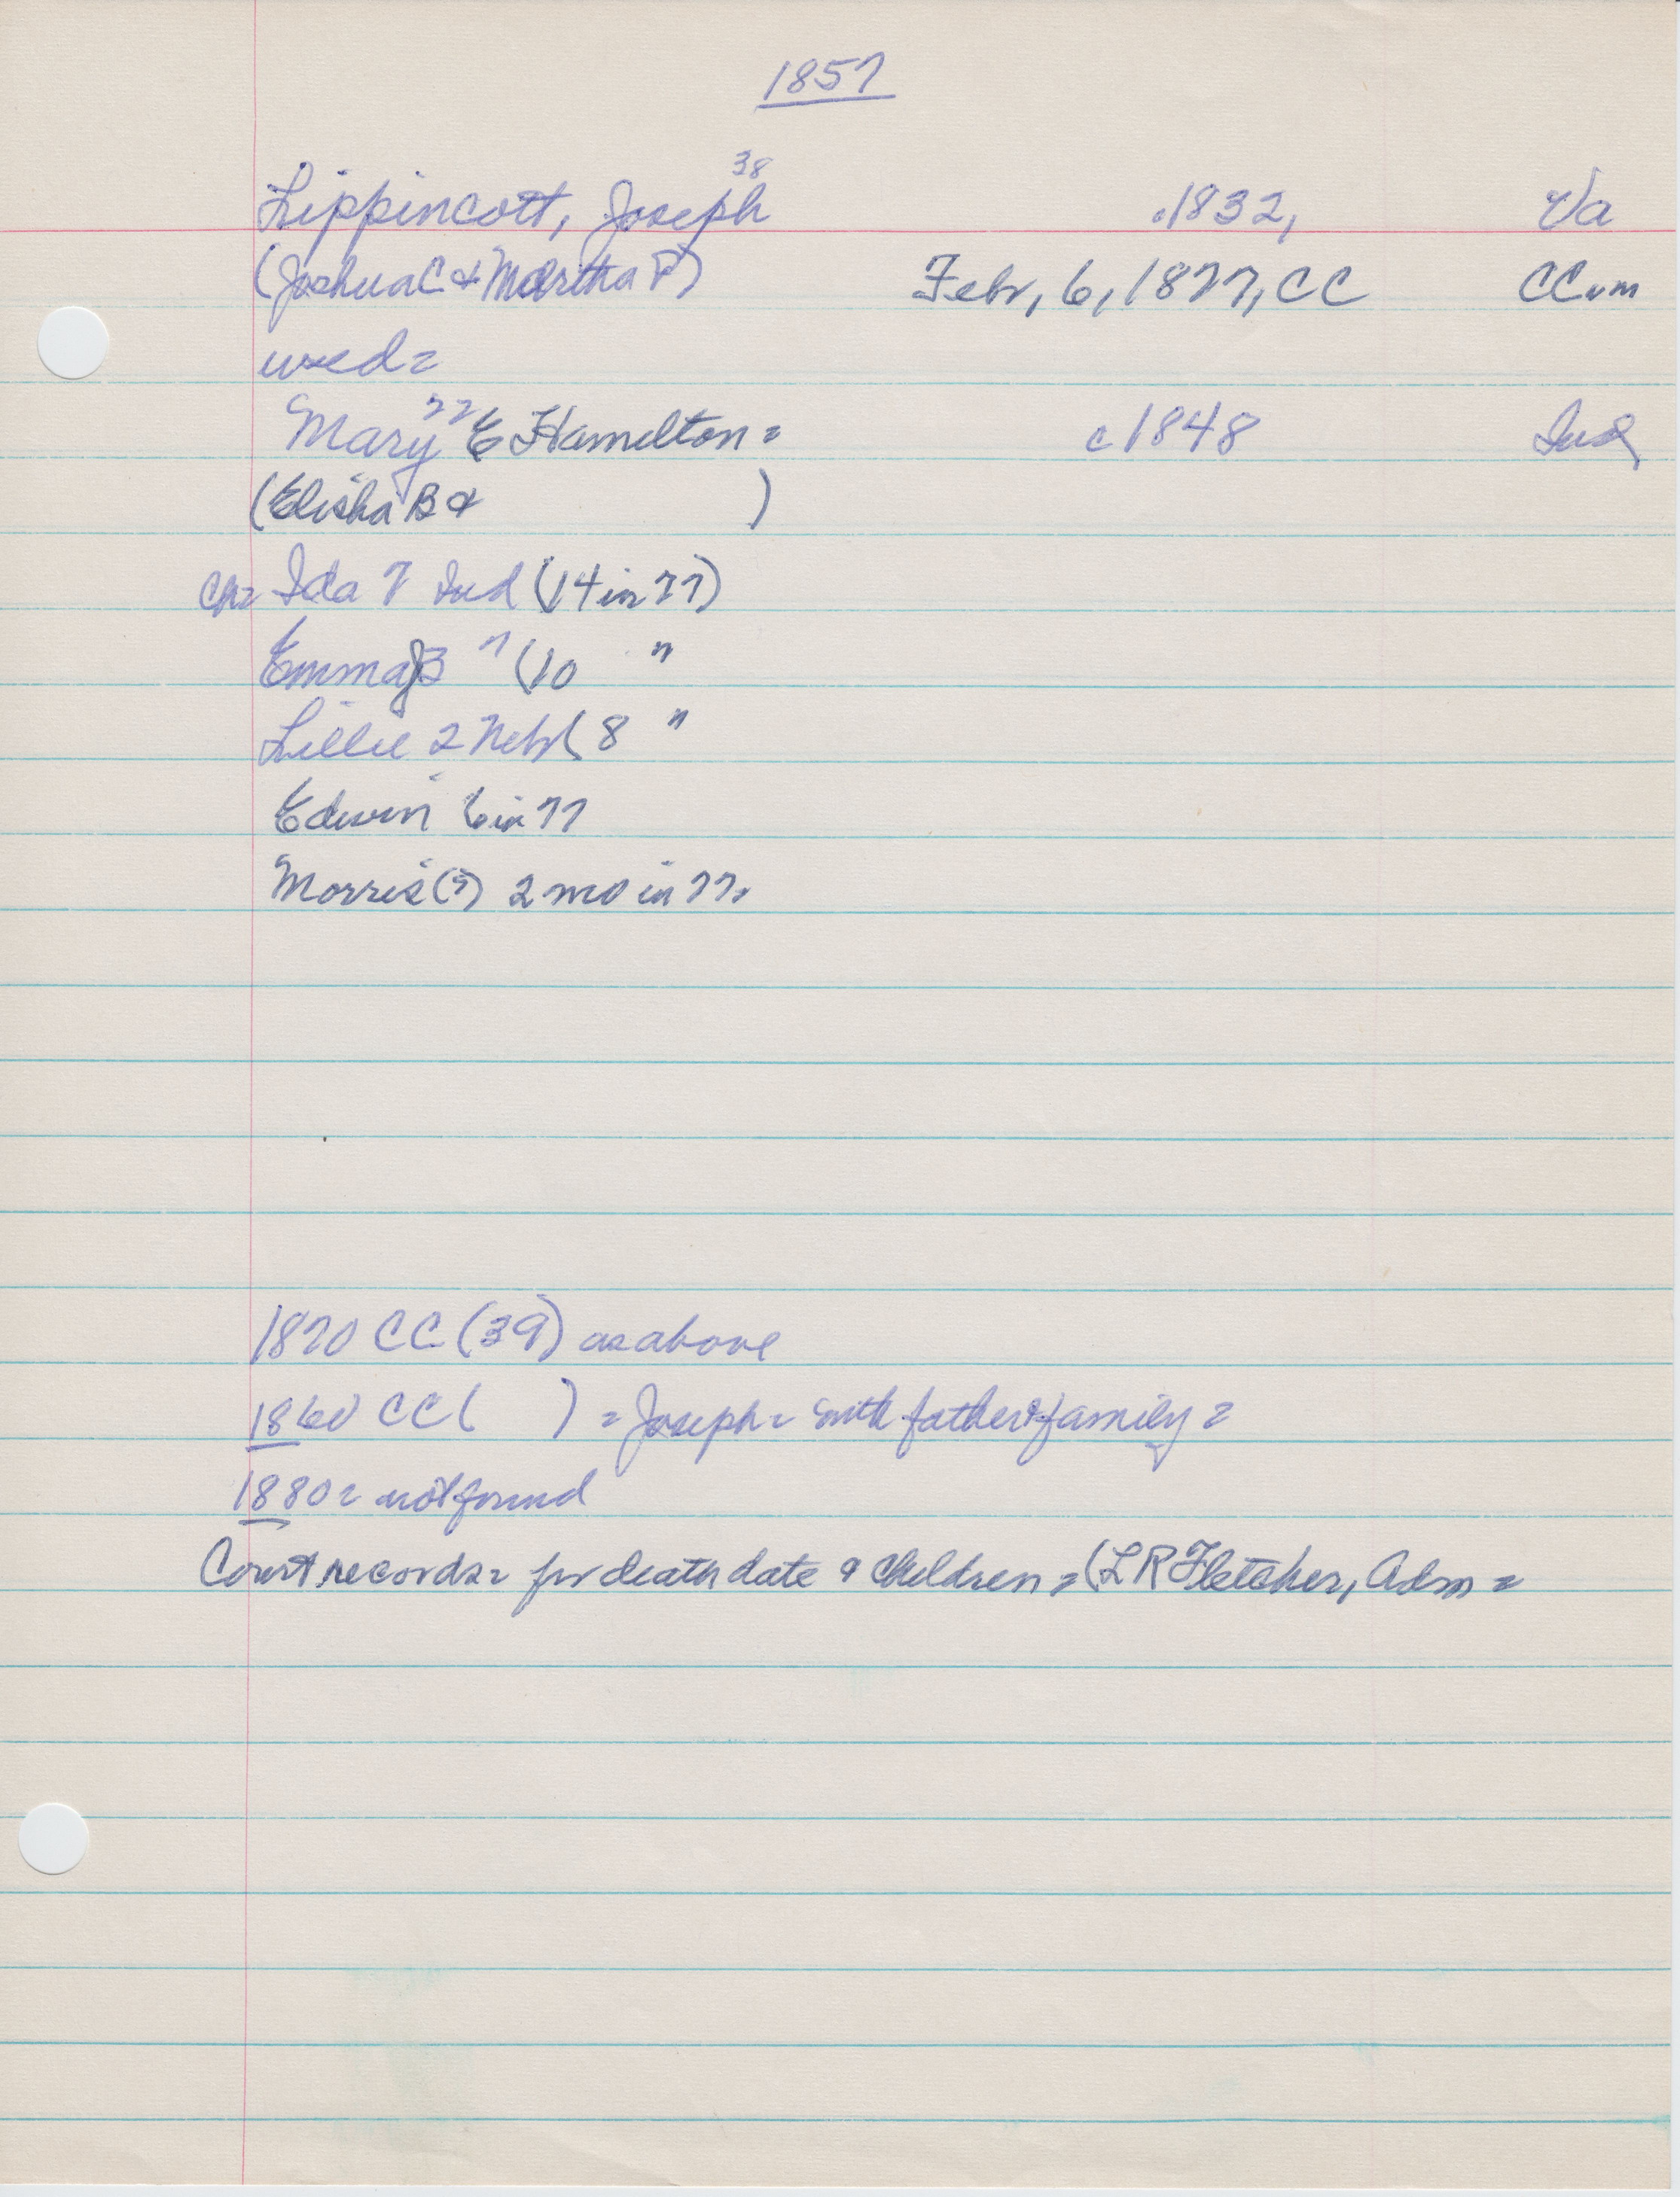 1857
38
Lippincott, Joseph c1832, Va
(Joshua C & Martha P) Febr, 6, 1877, CC CC
wed=
Mary 22 E Hamilton = c1848 Ind
(Elisha B & )
Ch= Ida 7 Ind (14 in 77)
Emma J 3 " (10 "
Lillie 2 Neb (8 "
Edwin 6 in 77
Morris (?) 2 mo in 77.
1870 CC (39) as above
1860 CC ( ) = Joseph = with father & family =
1880 = not found
Court records = for death date & children = (L R Fletcher, Adm =